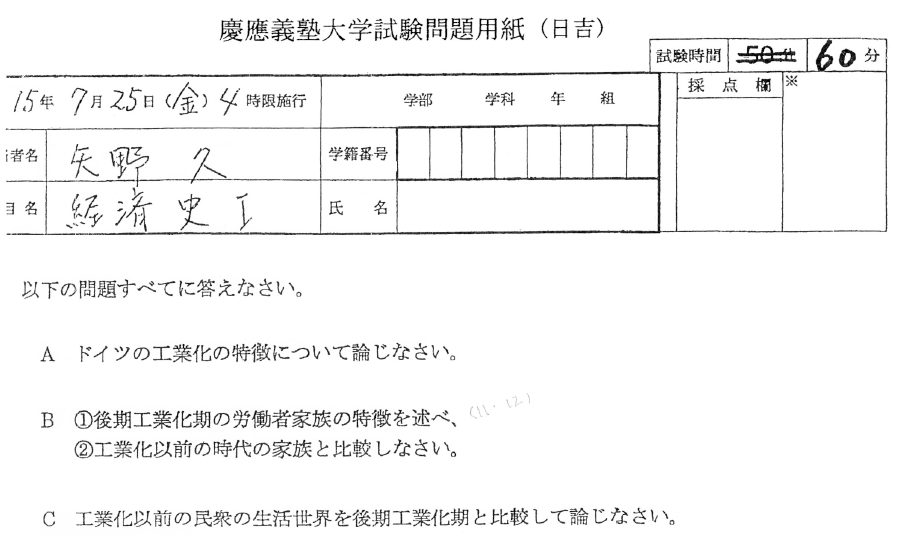 慶應義塾大学試験問題用紙（日吉）
試験時間 50分 60分
15年 7月25日（金）4時限施行 学部 学科 年 組
採点欄 ※
者名 矢野 久 学籍番号
目名 経済史Ⅰ 氏 名
以下の問題すべてに答えなさい。
A ドイツの工業化の特徴について論じなさい。
B ①後期工業化期の労働者家族の特徴を述べ、 (11・12)
②工業化以前の時代の家族と比較しなさい。
C 工業化以前の民衆の生活世界を後期工業化期と比較して論じなさい。